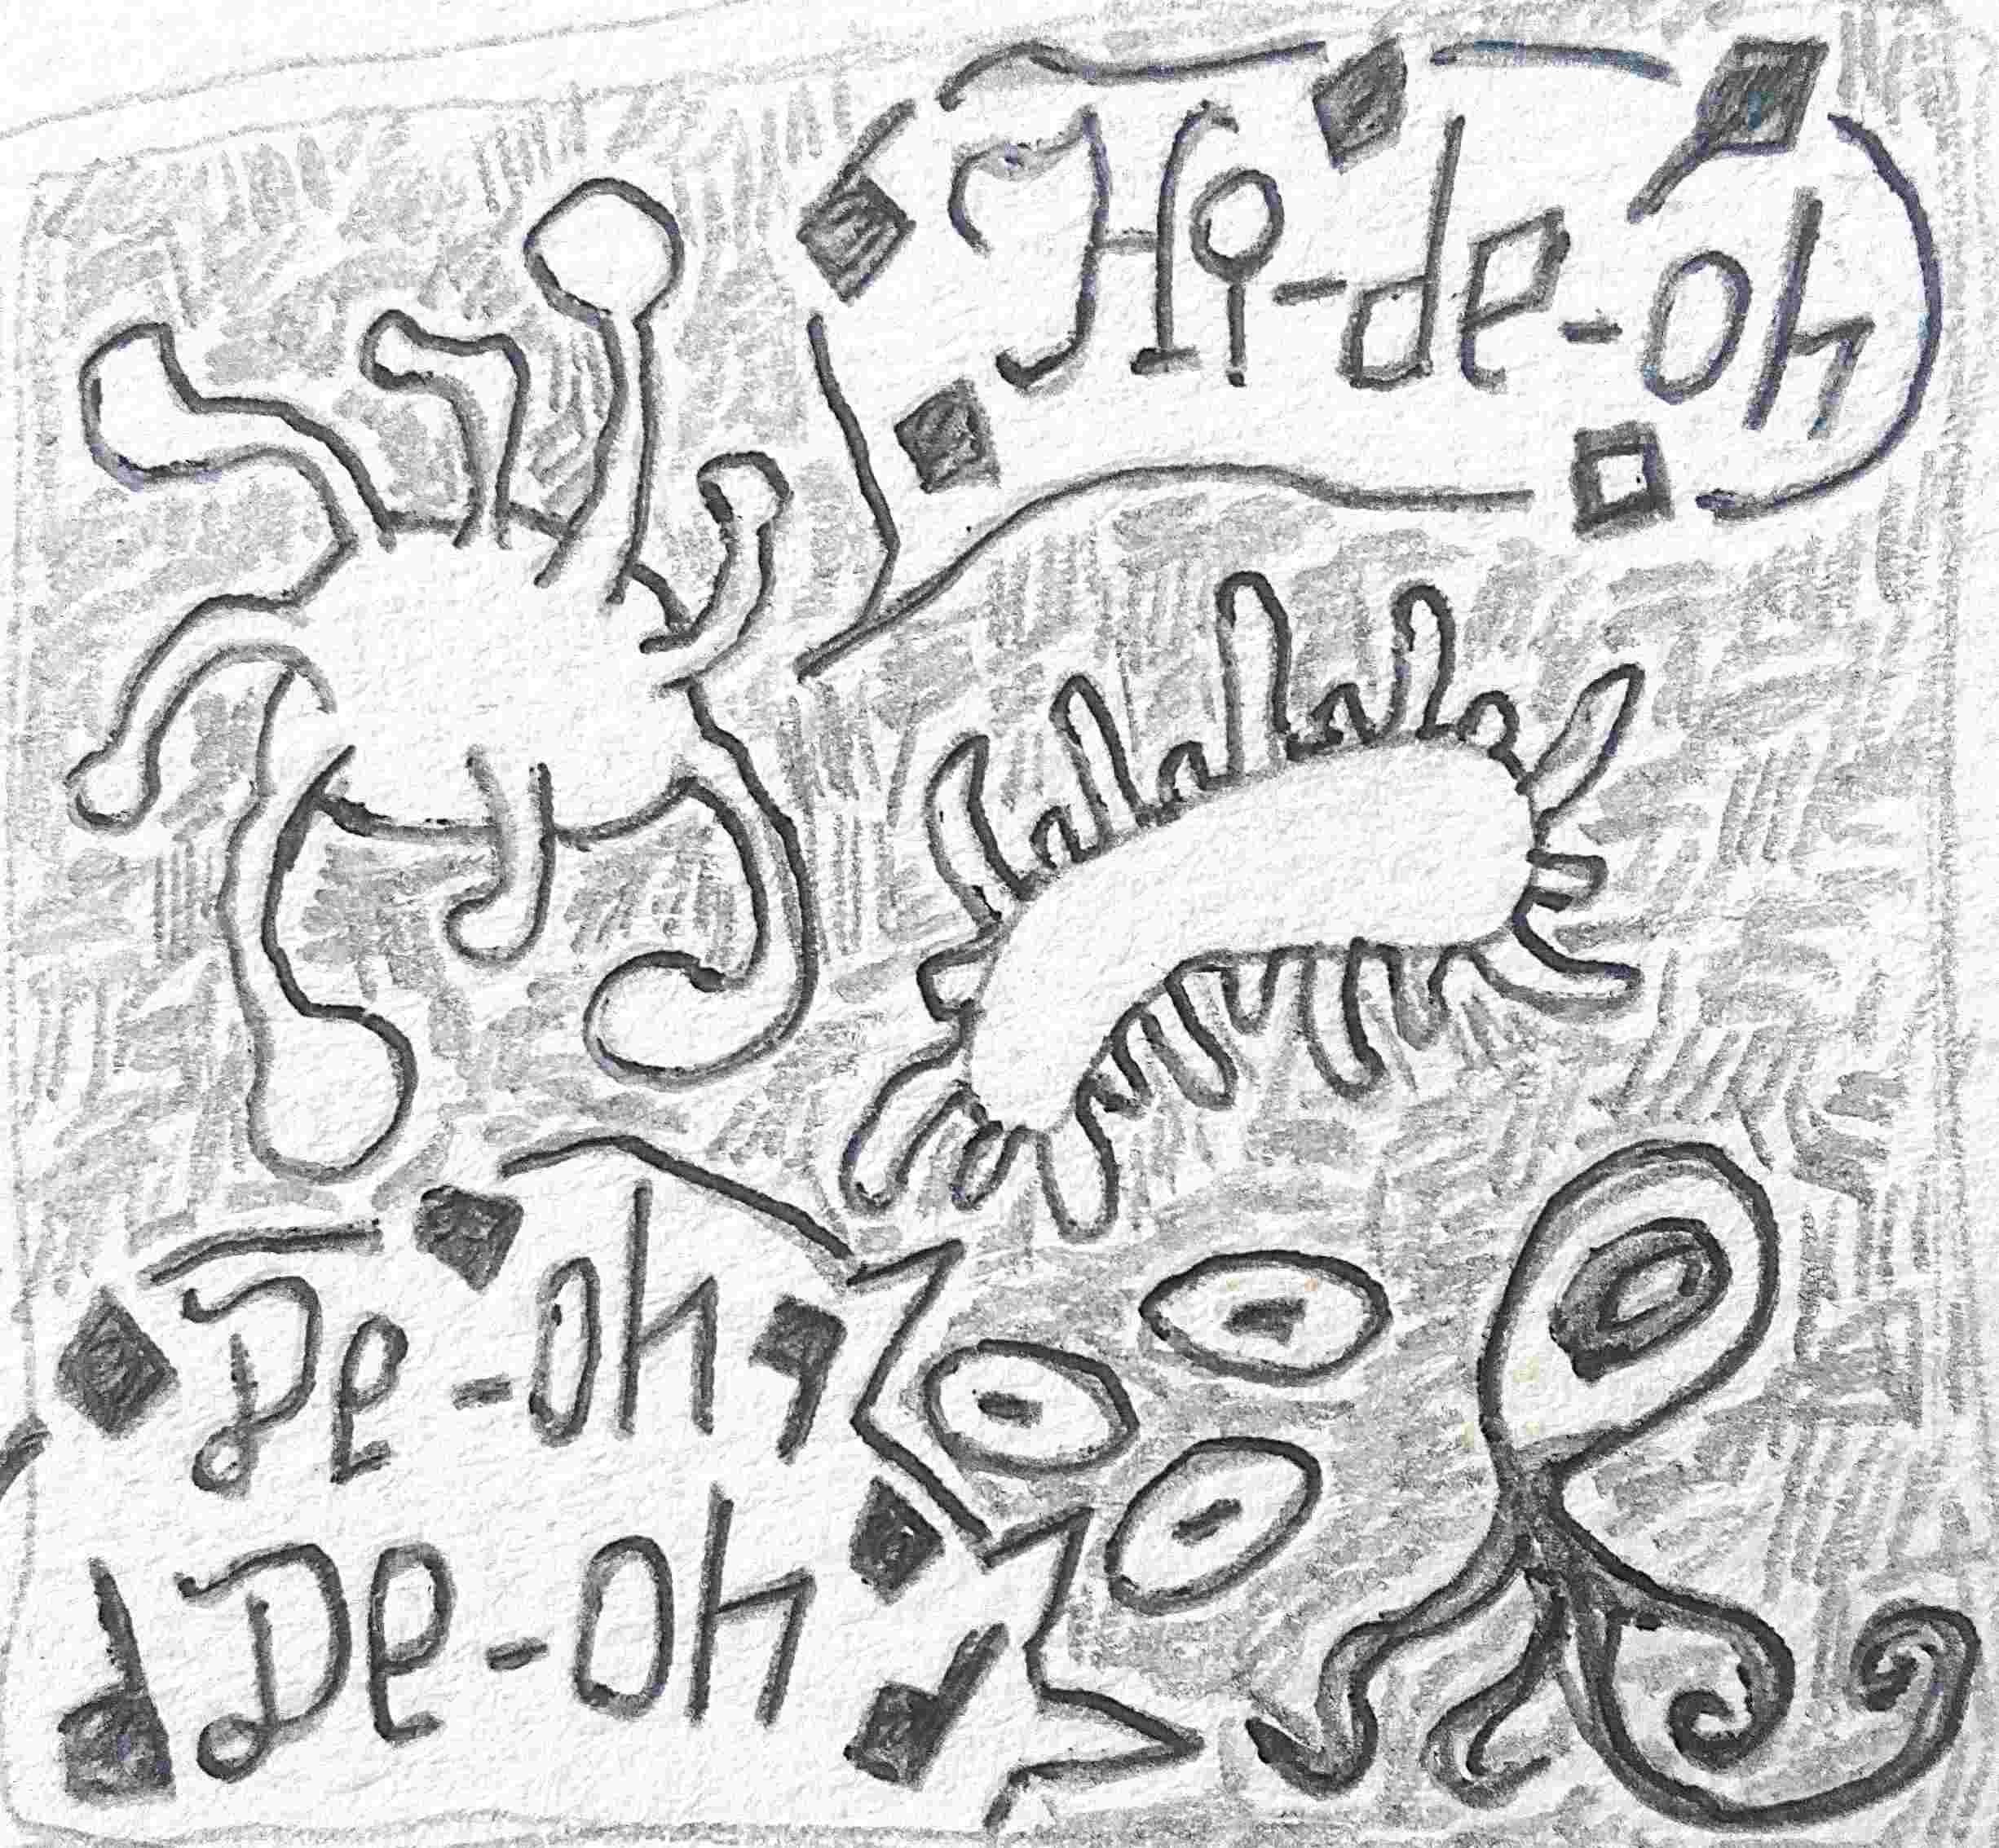 Hi-de-oh
De-oh
De-oh